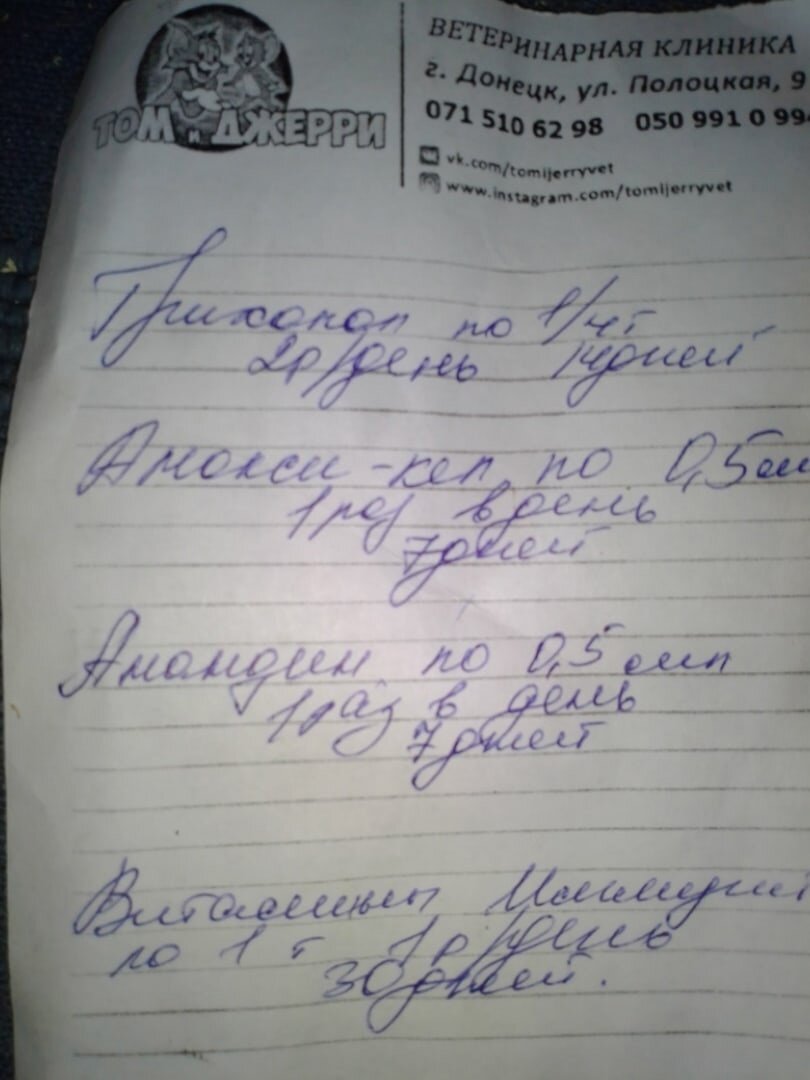 ТОМ и ДЖЕРРИ
ВЕТЕРИНАРНАЯ КЛИНИКА
г. Донецк, ул. Полоцкая, 9
071 510 62 98 050 991 0 99
vk.com/tomijerryvet
www.instagram.com/tomijerryvet
Трихопол по 1/4т
2р/день 14дней
по 0,5мл
1 раз в день
7дней
Амандин по 0,5 мл
1 раз в день
7дней
Витамины
по 1 т 1р/день
30дней.